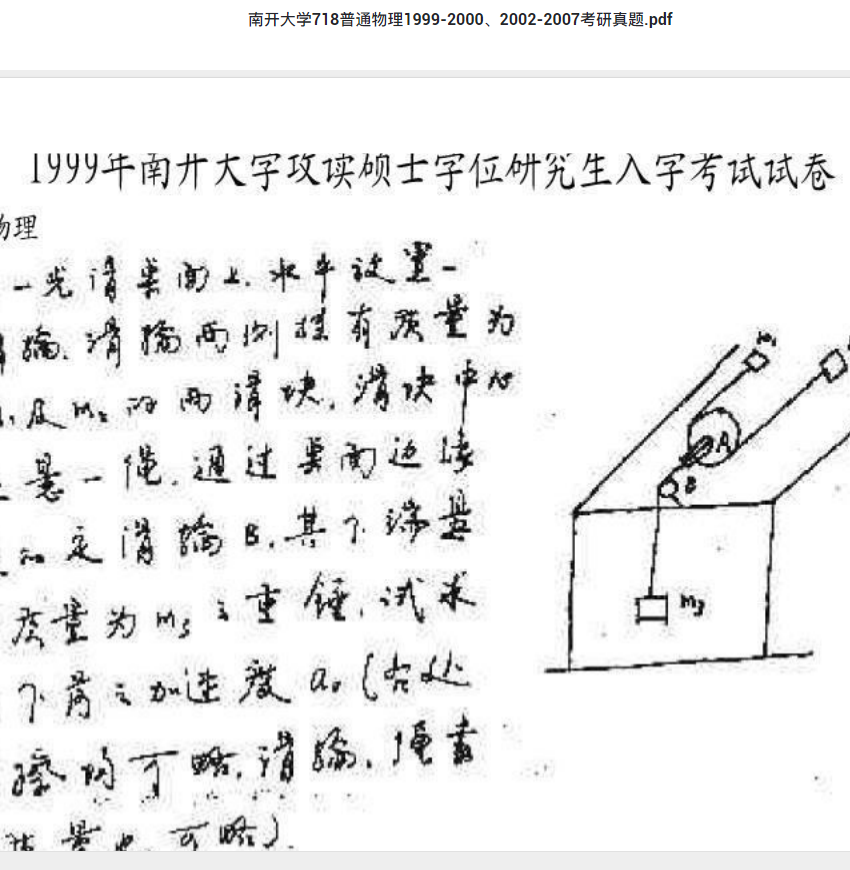 南开大学718普通物理1999-2000、2002-2007考研真题.pdf
1999年南开大学攻读硕士学位研究生入学考试试卷
物理
一光滑桌面上.水平放置一
滑轮.滑轮两侧挂有质量为
及m₂的两滑块.滑块中心
悬一绳.通过桌面边缘
定滑轮B.其下端悬
质量为m₃之重锤.试求
下落之加速度a.(各处
擦均可略.滑轮.绳索
质量也可略).
m₁
A
B
m₃